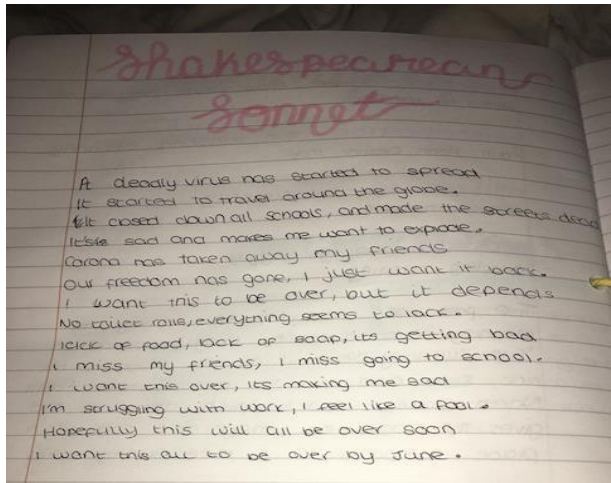 Shakespearean
Sonnet
A deadly virus has started to spread
It started to travel around the globe.
It closed down all schools, and made the streets dead
It's sad and makes me want to explode.
Corona has taken away my friends
Our freedom has gone, I just want it back.
I want this to be over, but it depends
No toilet rolls, everything seems to lack.
lack of food, lack of soap, its getting bad
I miss my friends, I miss going to school.
I want this over, its making me sad
I'm struggling with work, I feel like a fool.
Hopefully this will all be over soon
I want this all to be over by June.